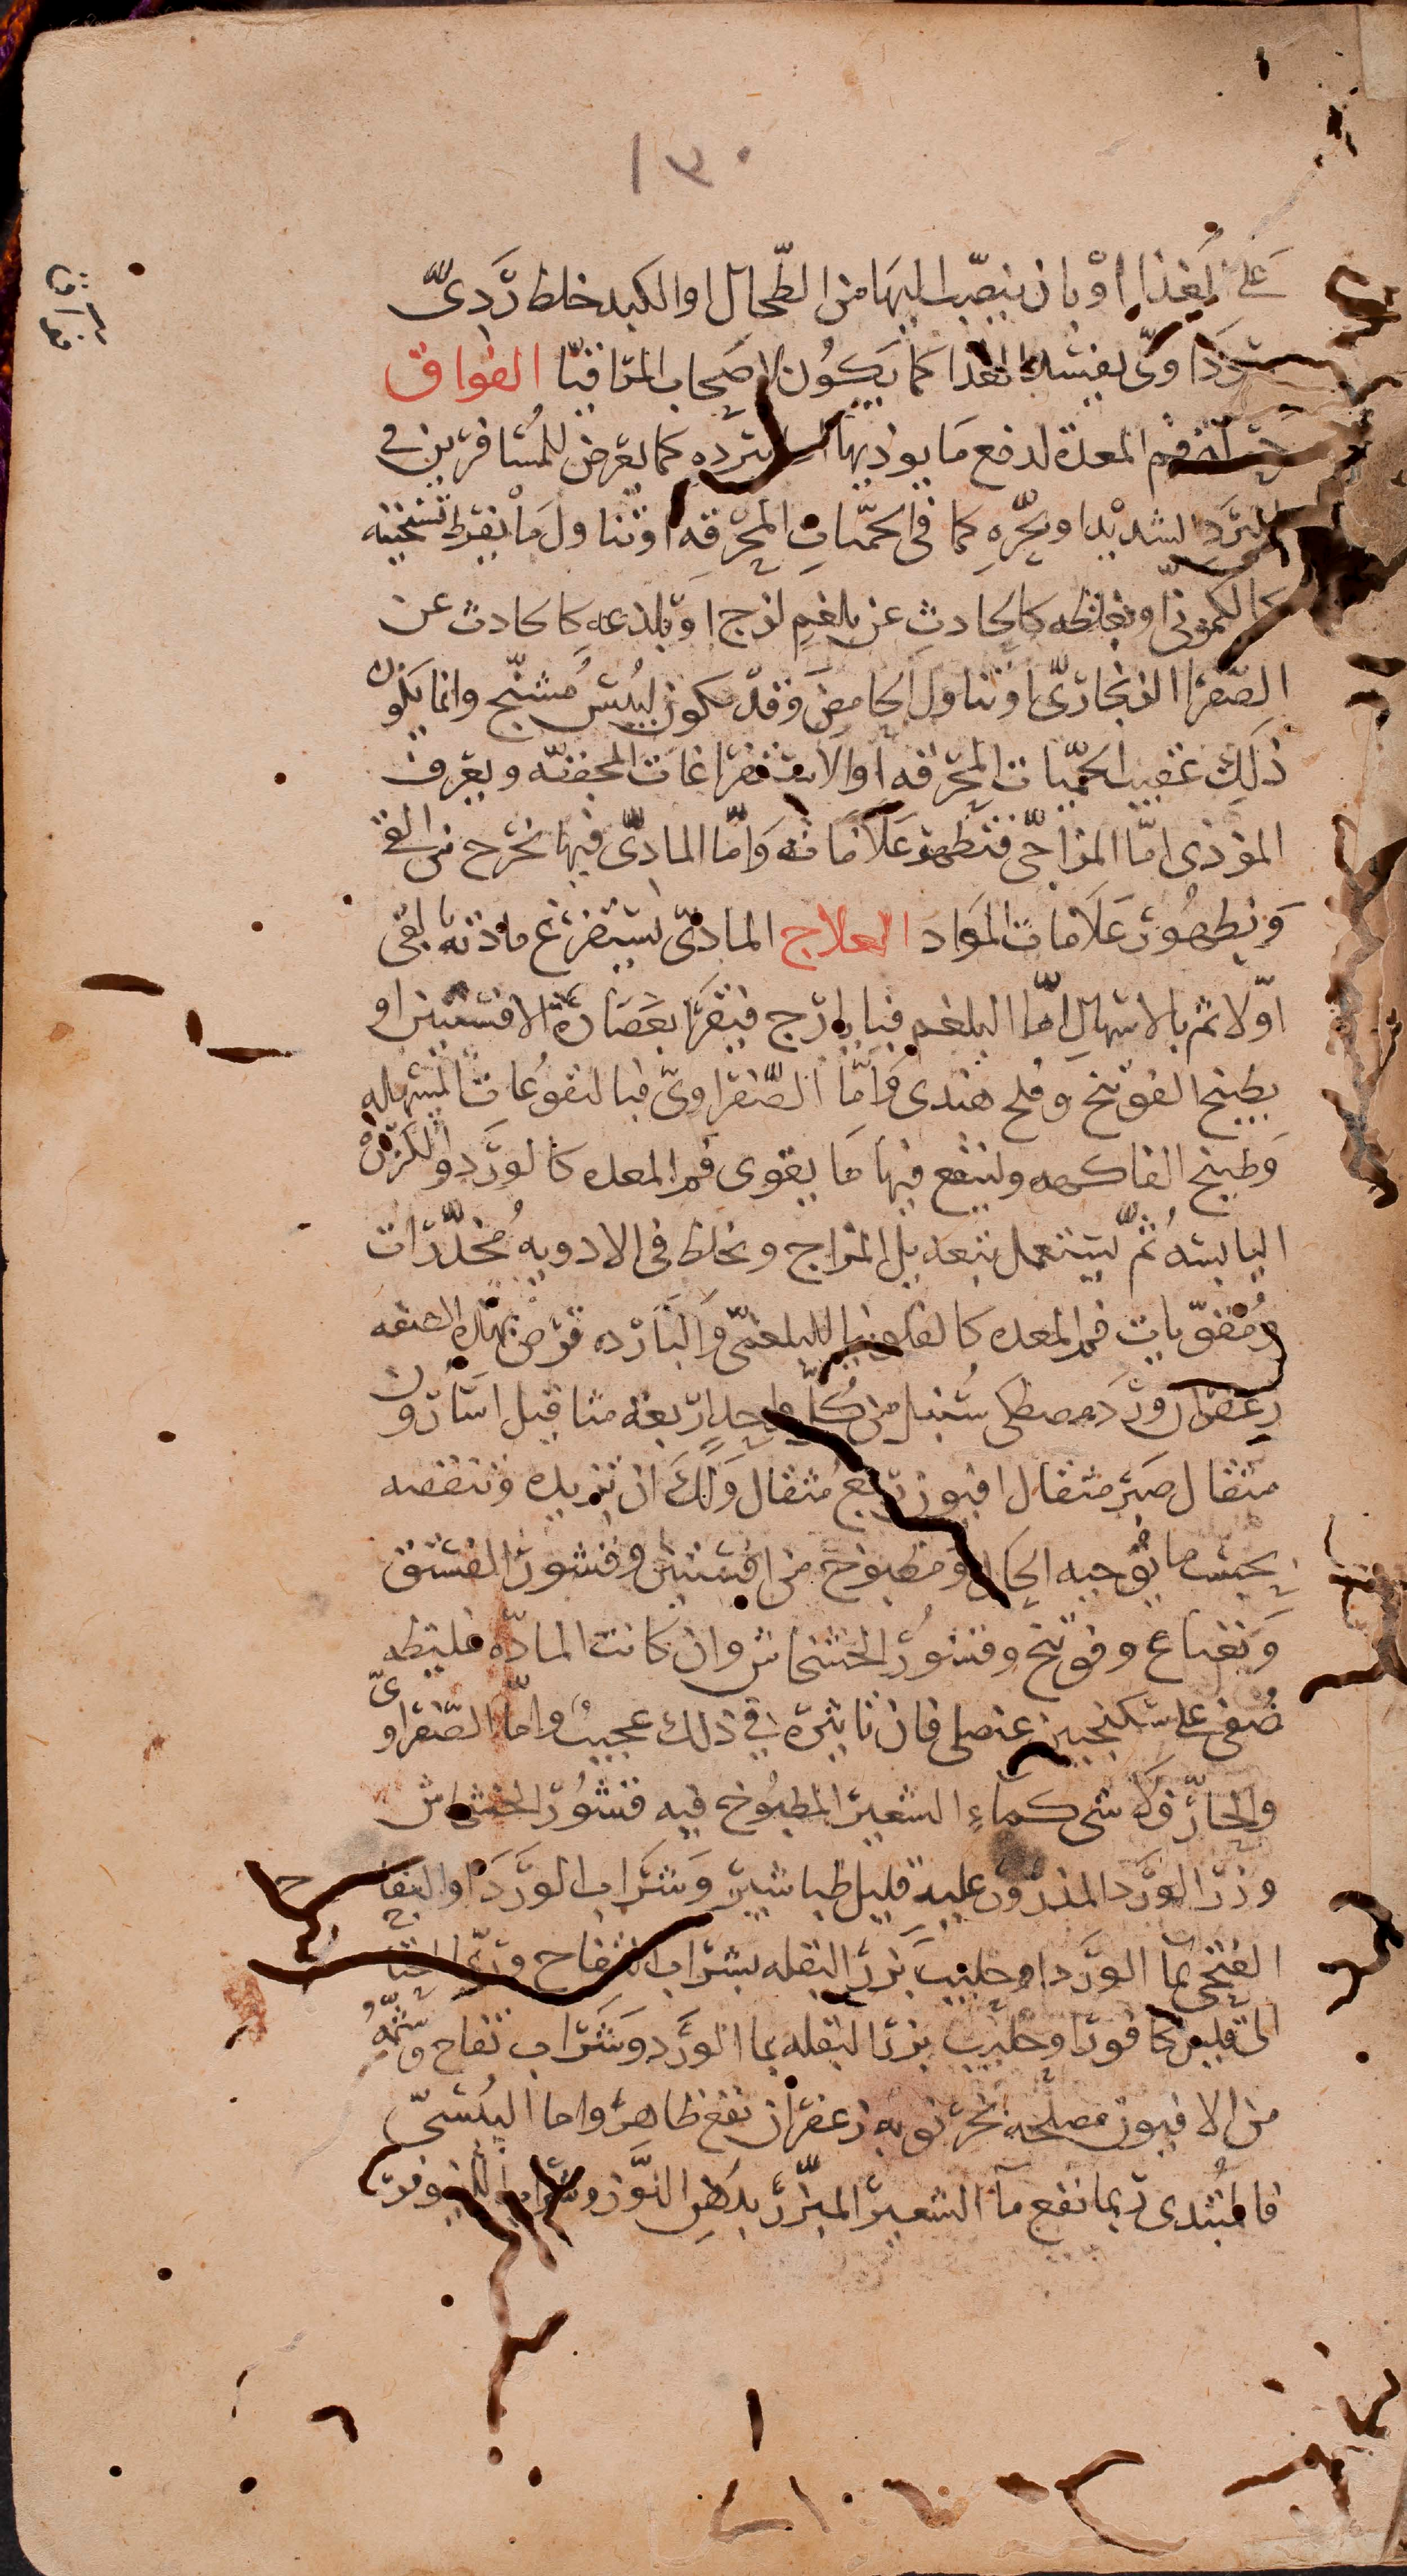 ١٣٠
على الغذا او بان ينصب اليها من الطحال او الكبد خلط ردىّ
سوداوىّ يفسد الغذا كما يكون لاصحاب المراقيا الفواق
حركة فم المعدة لدفع ما يوذيها اما ببرده كما يعرض للمسافرين فى
البرد الشديد او بحره كما فى الحميات المحرقه او تناول ما يفرط تسخينه
كالكمونىّ او بغلظه كالحادث عن بلغم لزج او بلذعه كالحادث عن
الصفرا الزنجارىّ او تناول الحامض وقد يكون ليبس مشنج وانما يكون
ذلك عقيب الحميات المحرقه او الاستفراغات المجففه ويعرف
الموذى اما المزاجى فتظهر علاماته واما المادى فبما يخرج من القى
وبظهور علامات المواد العلاج المادى يستفرغ مادته بالقى
اولا ثم بالاسهال اما البلغم فبايارج فيقرا بعصارة الافسنتين او
بطبيخ الفوتنج وملح هندى واما الصفراوى فبالنقوعات المسهله
وطبيخ الفاكهه ولينقع فيها ما يقوى فم المعده كالورد والكزبره
اليابسه ثم ليستعمل بتعديل المزاج ويخلط فى الادويه مخدرات
ومقويات فم المعده كالفلونيا للبلغمى والبارده قرص بهذه الصفه
زعفران ورد مصطكى سنبل من كل واحد اربعة مثاقيل اسارون
مثقال صبر مثقال افيون ربع مثقال ولك ان تزيده وتنقصه
بحسب ما توجبه الحال ومطبوخ من افسنتين وقشور الفستق
ونعناع وفوتنج وقشور الخشخاش وان كانت الماده غليظه
صفى على سكنجبين عنصلى فان تاثيره فى ذلك عجيب واما الصفراوى
والحار فلا شى كماء الشعير المطبوخ فيه قشور الخشخاش
وزر الورد المذرور عليه قليل طباشير وشراب الورد او التفاح
الفتحى بما الورد او حليب بزر البقله بشراب التفاح وربما احتاج
الى قليل كافور او حليب بزر البقله بما الورد وشراب تفاح وشمه
من الافيون مصلحه بخرنوبه زعفران نفع ظاهر واما اليبسى
فالمبتدى ربما نفع ما الشعير المبزر بدهن اللوز وشراب النيلوفر